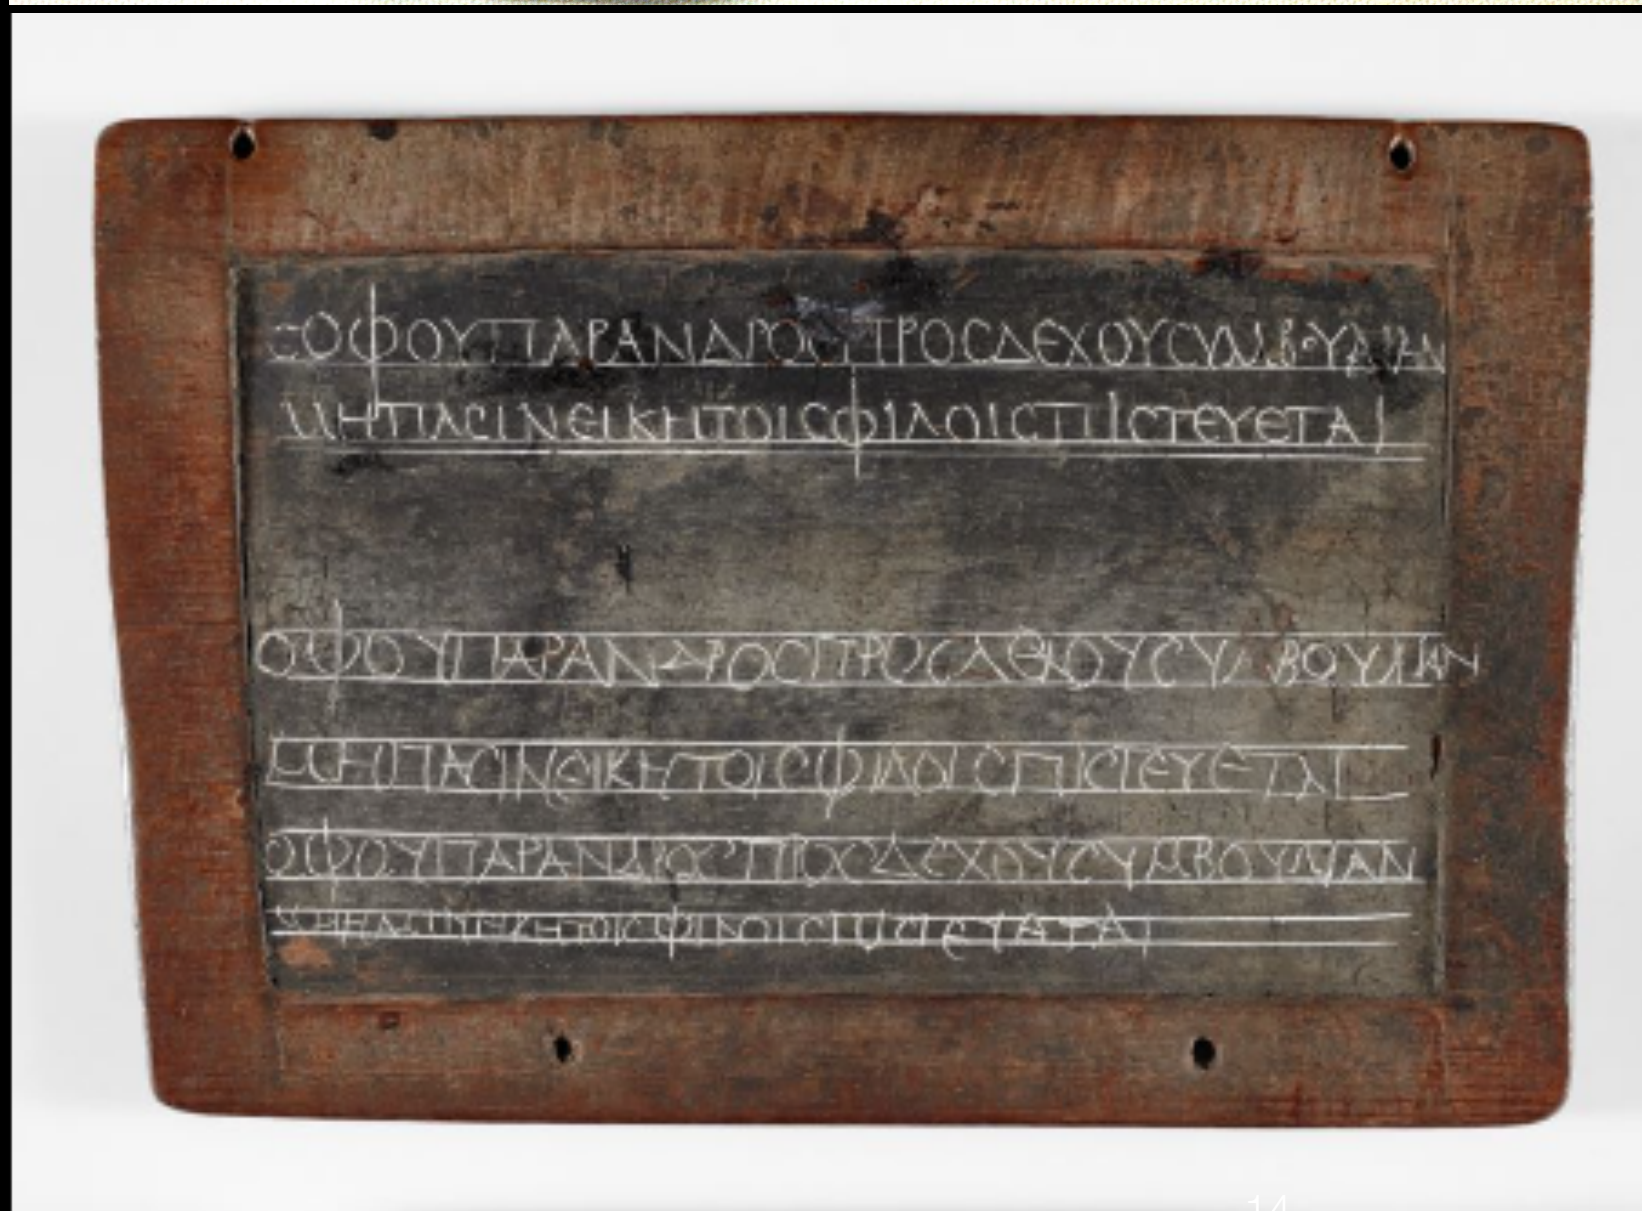 ΣΟΦΟΥΠΑΡΑΝΔΡΟΣΠΡΟΣΔΕΧΟΥΣΥΜΒΟΥΛΙΑΝ
ΜΗΠΑΣΙΝΕΙΚΗΤΟΙΣΦΙΛΟΙΣΠΙΣΤΕΥΕΤΑΙ
ΟΦΟΥΠΑΡΑΝΔΡΟΣΠΡΟΣΔΕΧΟΥΣΥΜΒΟΥΛΙΑΝ
ΜΗΠΑΣΙΝΕΙΚΗΤΟΙΣΦΙΛΟΙΣΠΙΣΤΕΥΕΤΑΙ
ΟΦΟΥΠΑΡΑΝΔΡΟΣΠΡΟΣΔΕΧΟΥΣΥΜΒΟΥΛΙΑΝ
14